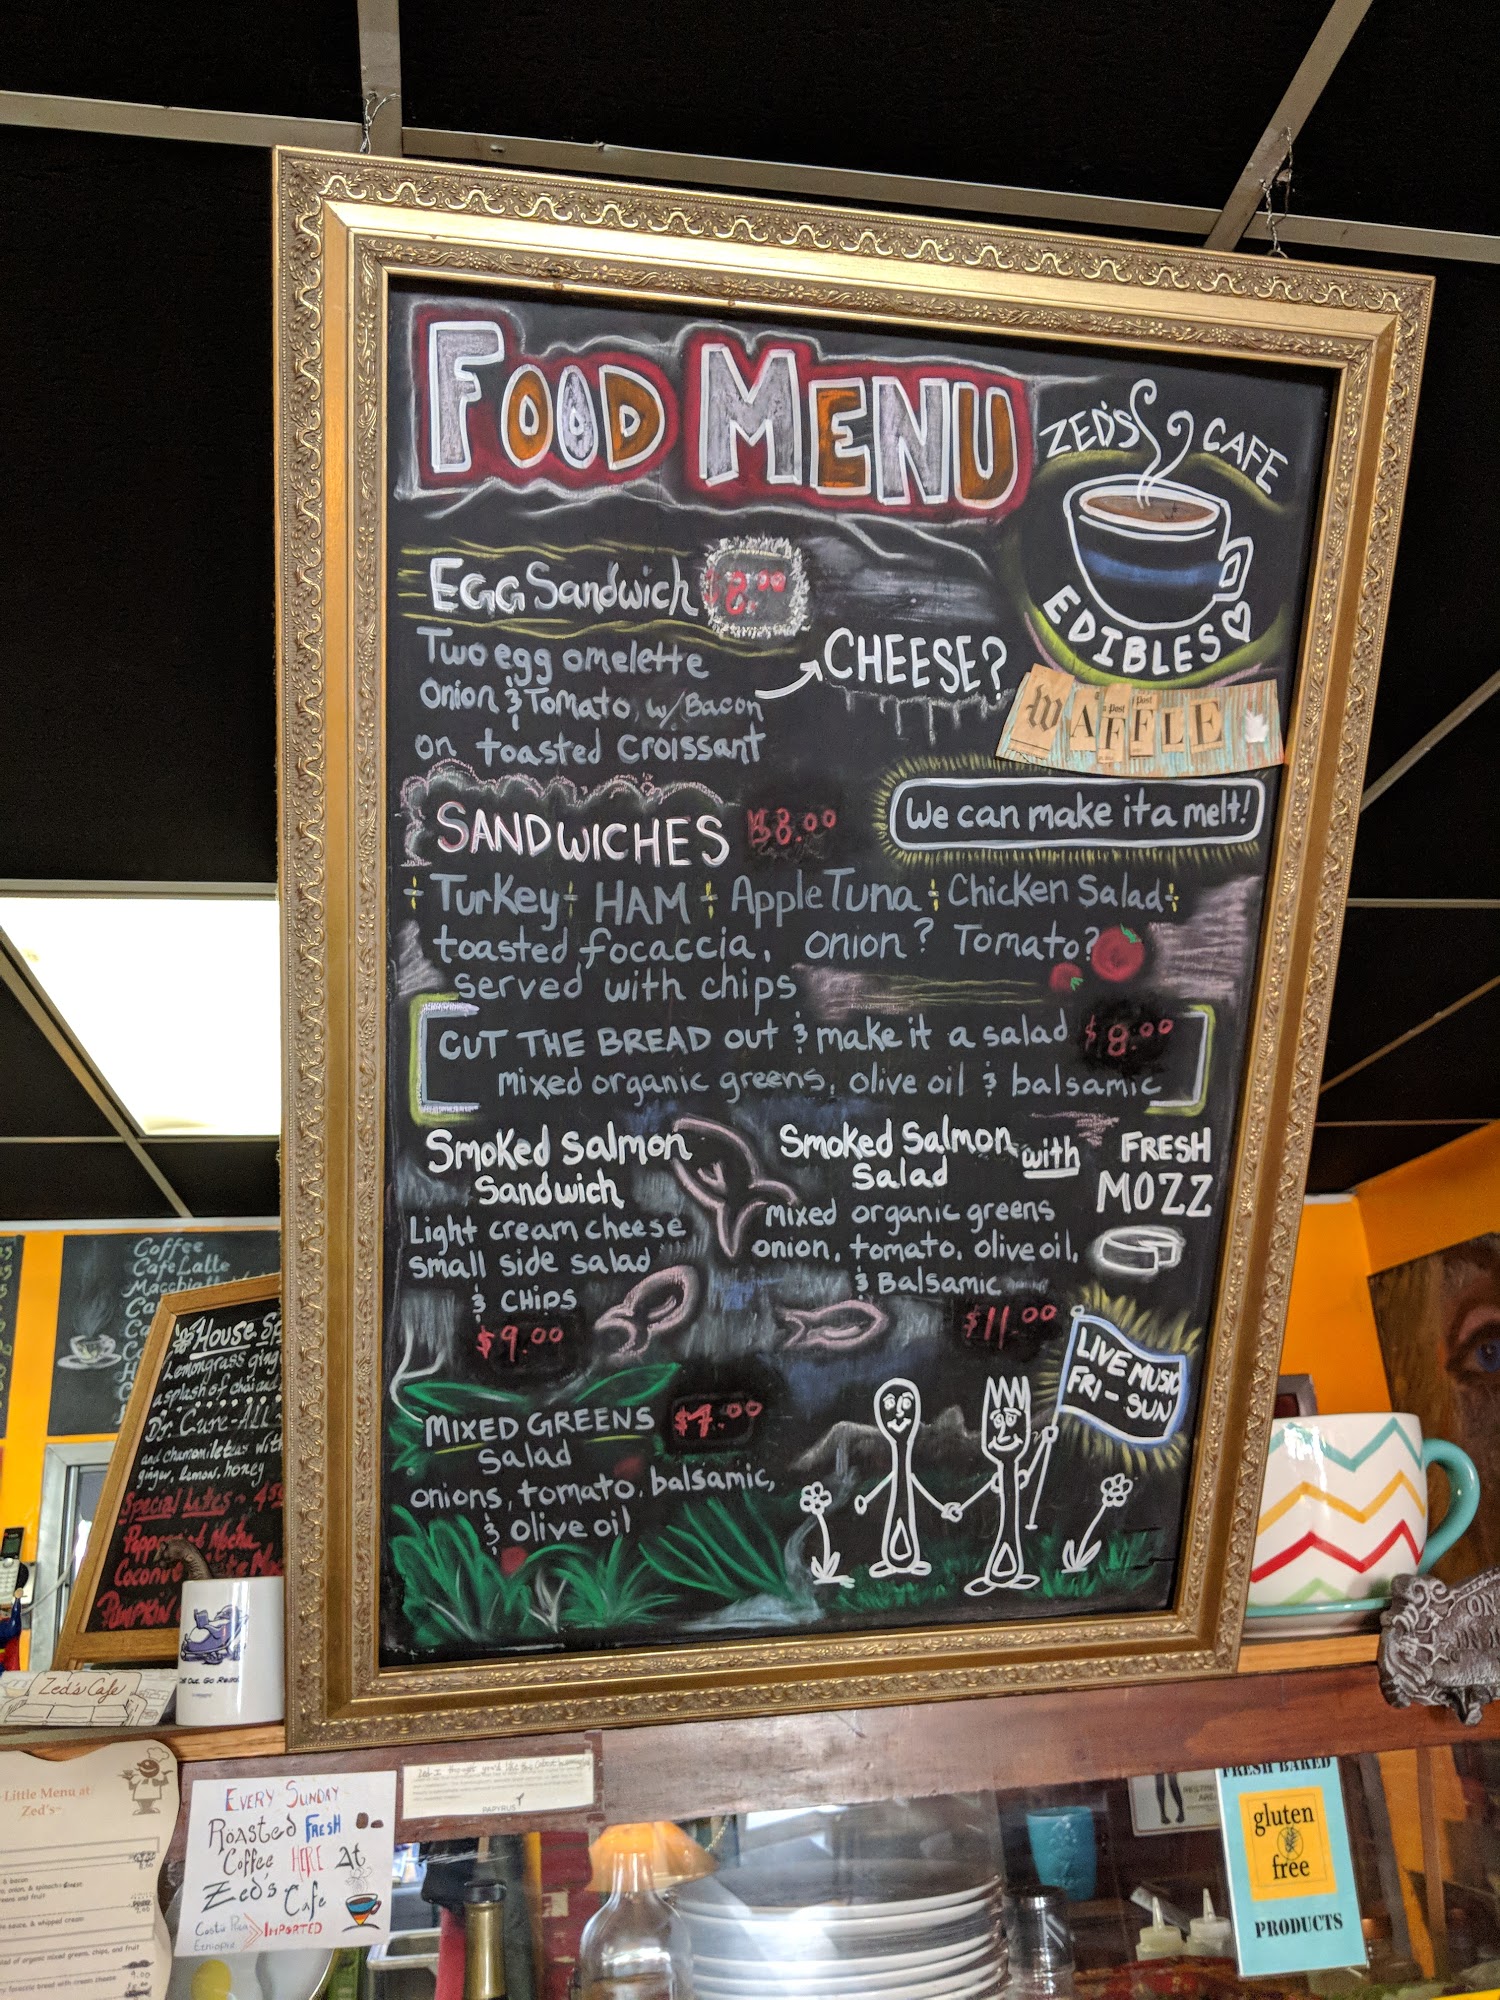 FOOD MENU
ZED'S CAFE
EDIBLES
EGG Sandwich $8.00
Two egg omelette
onion & Tomato w/ Bacon
on toasted croissant
CHEESE?
WAFFLE
SANDWICHES $8.00
We can make it a melt!
Turkey HAM Apple Tuna Chicken Salad
toasted focaccia, onion? Tomato?
served with chips
CUT THE BREAD out & make it a salad $8.00
mixed organic greens, olive oil & balsamic
Smoked Salmon
Sandwich
Light cream cheese
small side salad
& CHIPS
$9.00
Smoked Salmon
Salad
with FRESH
MOZZ
mixed organic greens
onion, tomato, olive oil,
& Balsamic
$11.00
MIXED GREENS $7.00
Salad
onions, tomato, balsamic,
& olive oil
LIVE MUSIC
FRI - SUN
Coffee
Cafe Latte
House
Lemongrass
a splash of chai and
Dr. Cure-All
and chamomile teas with
ginger, lemon, honey
Special Lates
Mocha
Pumpkin
Zed's Cafe
Little Menu at
Zed's
EVERY SUNDAY
Roasted FRESH
Coffee HERE At
Zed's Cafe
Costa Rica
Ethiopia
IMPORTED
PAPYRUS
FRESH BAKED
gluten
free
PRODUCTS